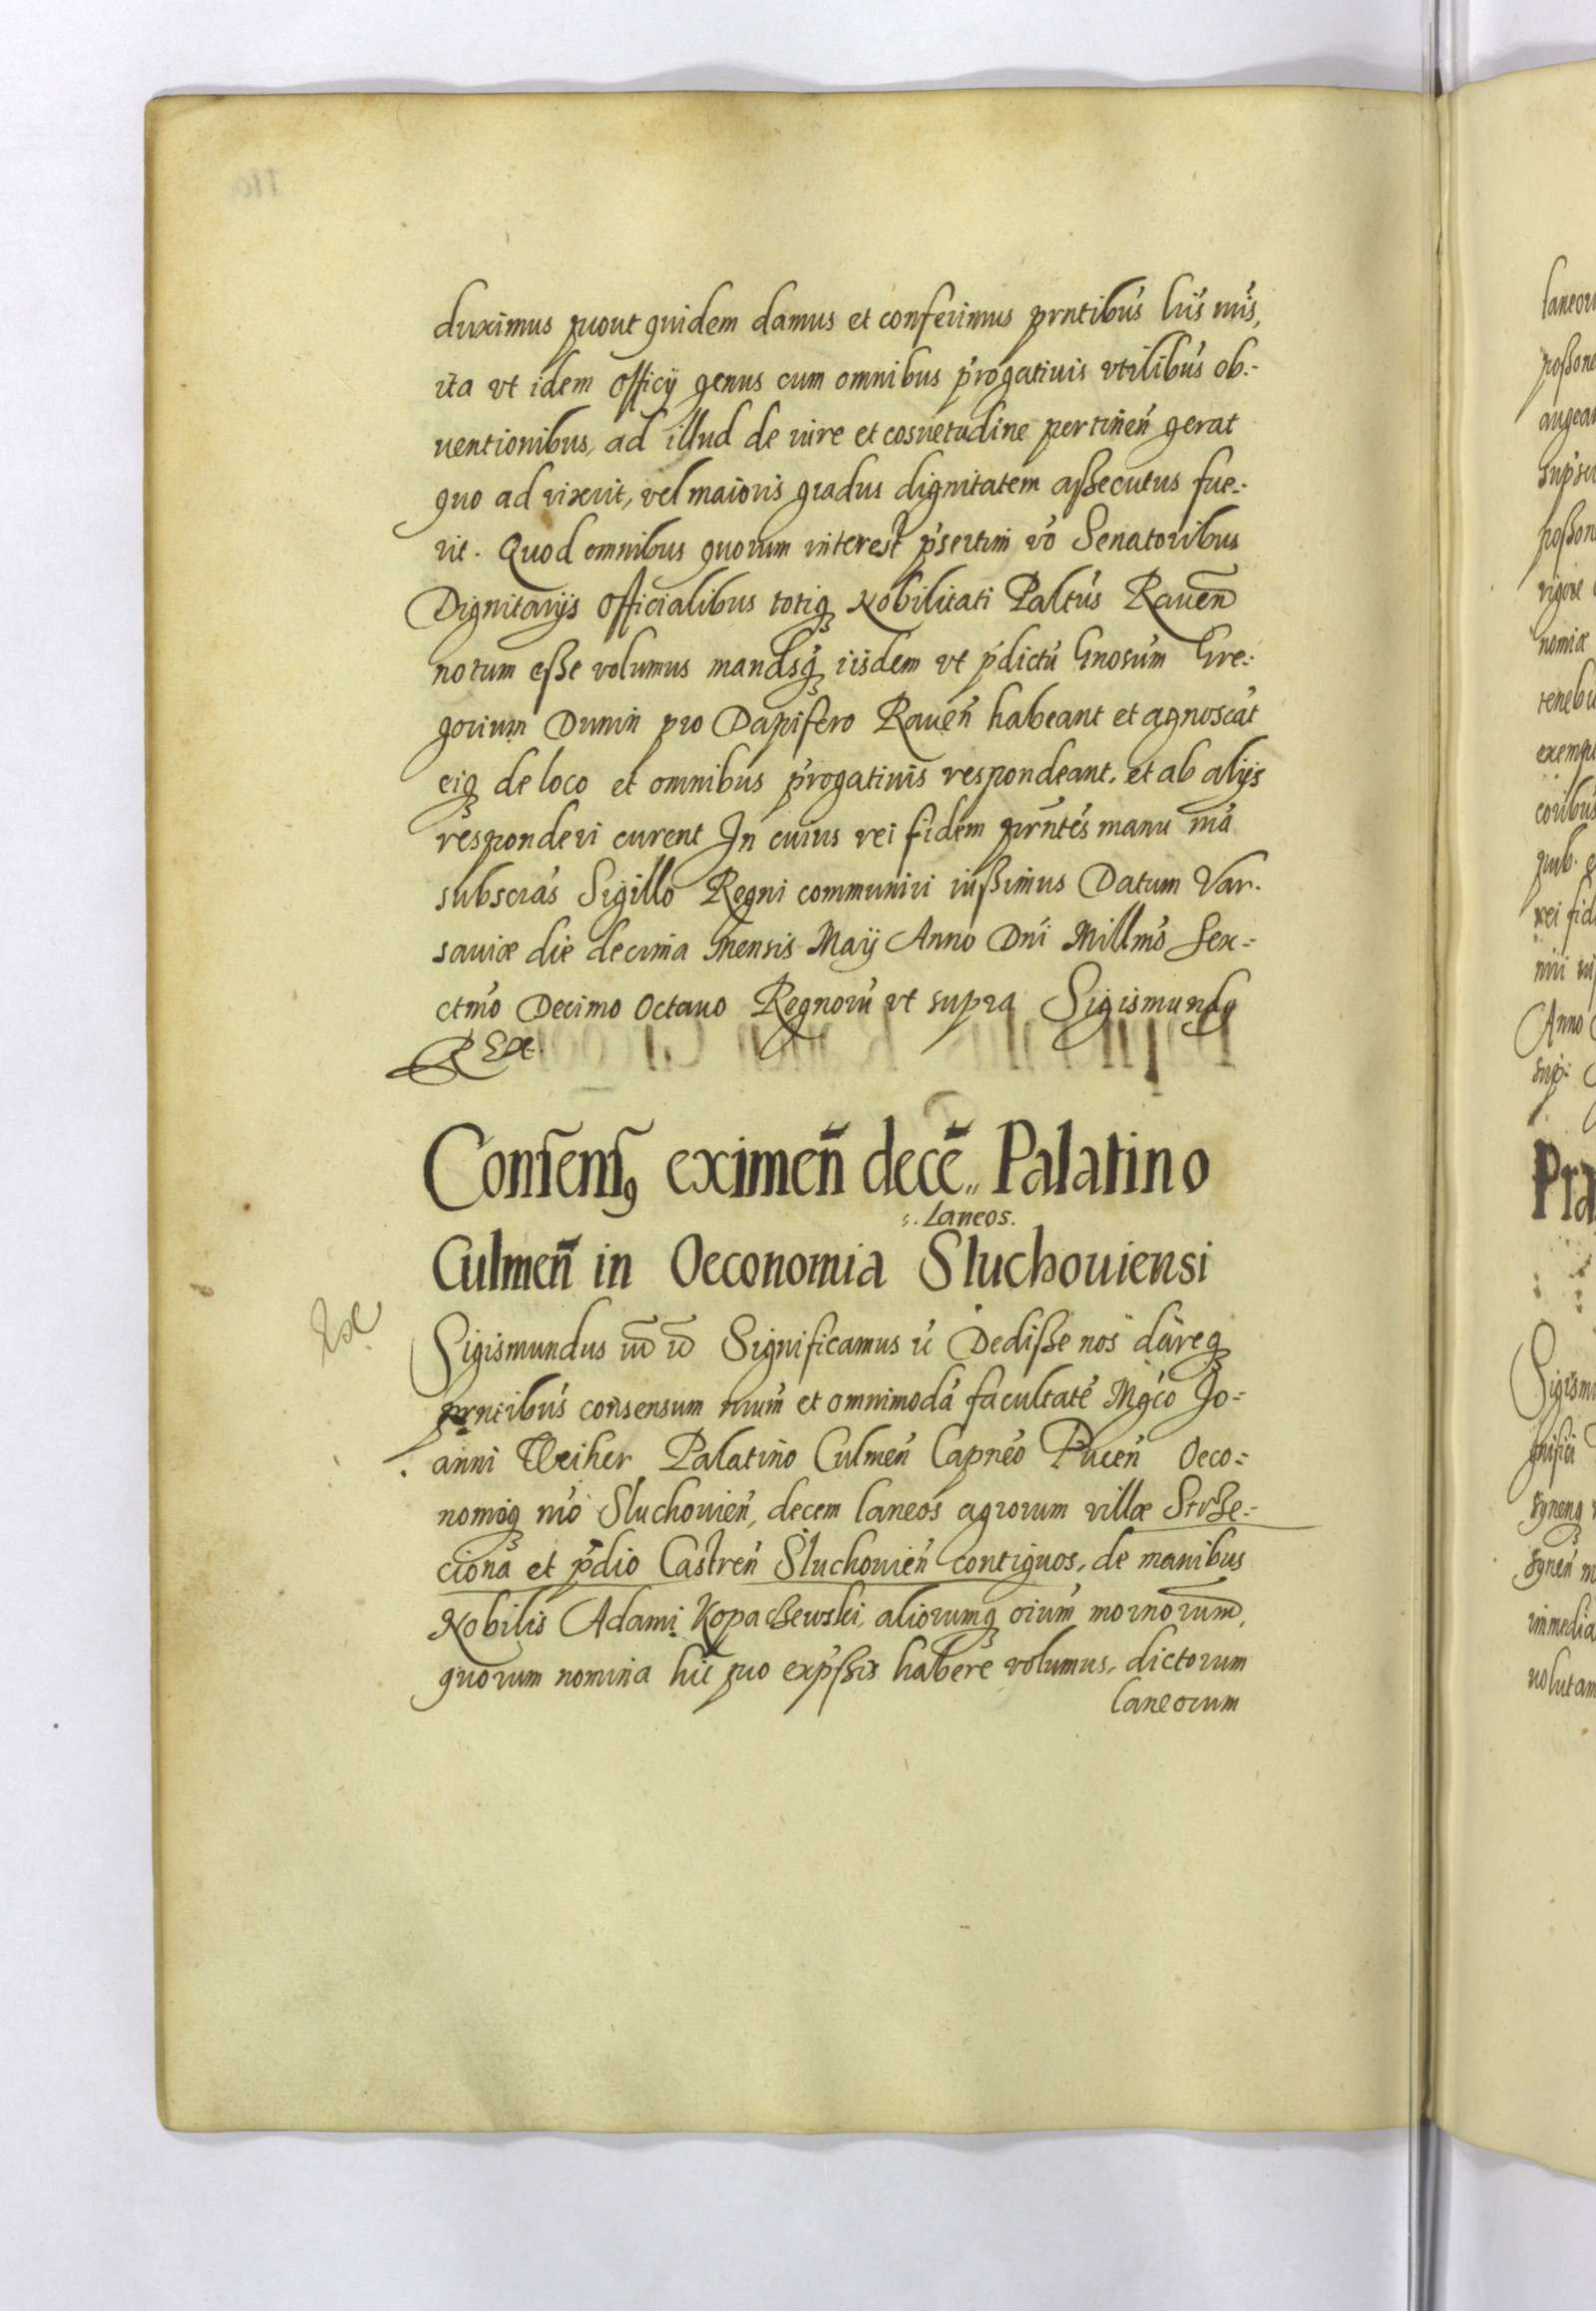 duximus prout quidem damus et conferimus prntibus lris nris,
ita vt idem officij genus cum omnibus p̃rogatiuis vtilibus ob-
uentionibus, ad illud de iure et cosuetudine pertineñ gerat
quo ad vixerit, vel maioris gradus dignitatem aßecutus fue-
rit. Quod omnibus quorum interest p̃sertim vo Senatoribus
Dignitarijs Officialibus totiq₃ Nobilitati Paltus Raueñ
notum eße volumus mandsq₃ iisdem vt p̃dictu Gnosum Gre-
gorium Dunin pro Dapifero Raueñ habeant et agnoscāt
eiq₃ de loco et omnibus p̃rogatiuis respondeant, et ab alijs
responderi curent In cuius rei fidem prntes manu nrā
subscras Sigillo Regni communiri iußimus Datum Var-
sauiæ die decima mensis Maij Anno Dni Millmo Sex-
ctmo Decimo Octauo Regnoru vt supra Sigismundꝯ
REx.
Consensꝯ eximeñ decē,, Palatino
:. Laneos.
Culmeñ in Oeconomia Sluchouiensi
Sigismundus Significamus Dediße nos dareq₃
prntibus consensum nrum et omnimodā facultatē Mgco Jo-
anni Weiher Palatino Culmeñ Capneo Puceñ Oeco-
nomoq₃ nro Sluchouieñ, decem laneos agrorum villæ Strze-
ciona et p̃dio Castreñ Sluchouieñ contiguos, de manibus
Nobilis Adami Kopaczewski, aliorumq₃ oium
quorum nomina hic pro exp̃ßis habere volumus, dictorum
laneorum